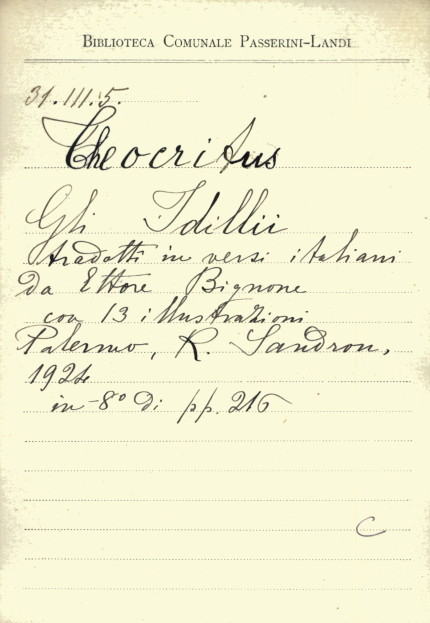 BIBLIOTECA COMUNALE PASSERINI-LANDI
31.III.5.
Theocritus
Gli Idillii
tradotti in versi italiani
da Ettore Bignone
con 13 illustrazioni
Palermo, R. Sandron,
1924
in-8° di pp. 216
C